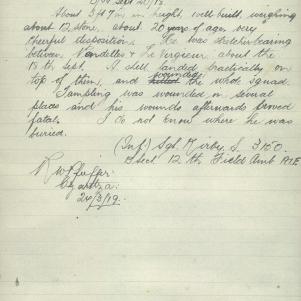 Sept 20/18.
About 5ft 7 in in height, well built, weighing
about 12 stone, about 20 year of age, very
cheerful disposition. He was stretcherbearing
between Vendelles & Le Verguier about the
18th Sept. A shell landed practically on
top of them, and wounded the whole squad.
Tampling was wounded in several
places and his wounds afterwards proved
fatal. I do not know where he was
buried.
(Inf) Sgt. Kirby S. 3150.
B Sect 12th Field Amb AIF
24/3/19.